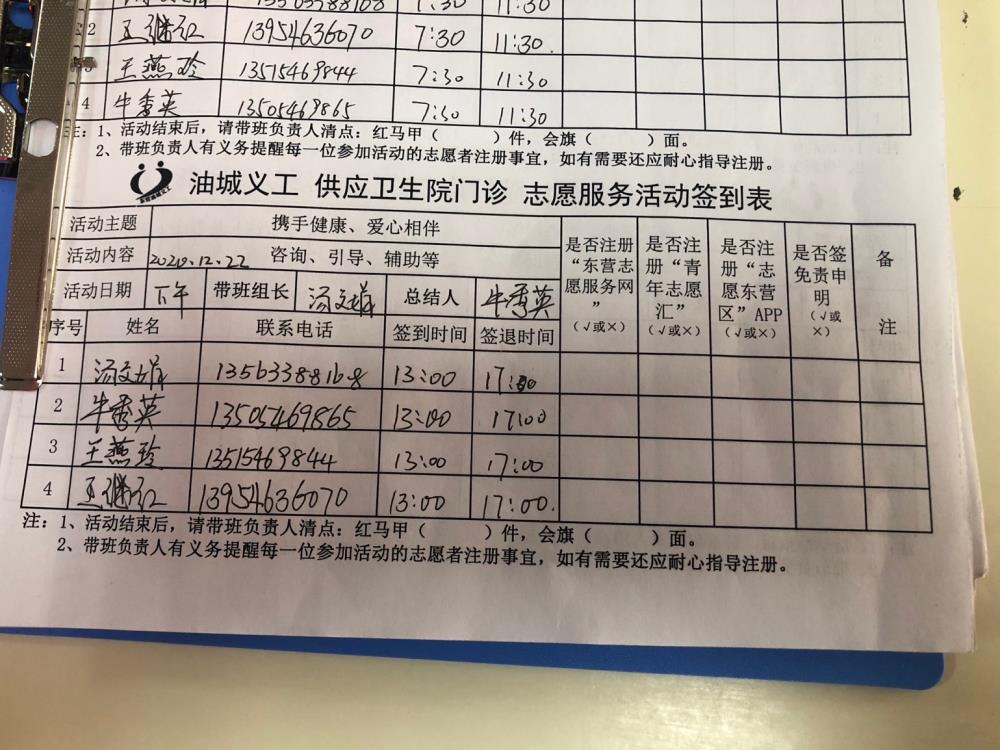 11:30
2 王继红 13954636070 7:30 11:30.
3 王燕玲 13515469844 7:30 11:30
4 牛秀英 13505469865 7:30 11:30
注：1、活动结束后，请带班负责人清点：红马甲（ ）件，会旗（ ）面。
2、带班负责人有义务提醒每一位参加活动的志愿者注册事宜，如有需要还应耐心指导注册。
油城义工 供应卫生院门诊 志愿服务活动签到表
活动主题 携手健康、爱心相伴
活动内容 咨询、引导、辅助等
2020.12.22
活动日期 下午 带班组长 总结人 牛秀英
是否注册“东营志愿服务网”（√或×）
是否注册“青年志愿汇”（√或×）
是否注册“志愿东营区”APP（√或×）
是否签免责申明（√或×）
备注
序号 姓名 联系电话 签到时间 签退时间
1 13563388168 13:00 17:00
2 牛秀英 13505469865 13:00 17:00
3 王燕玲 13515469844 13:00 17:00
4 王继红 13954636070 13:00 17:00.
注：1、活动结束后，请带班负责人清点：红马甲（ ）件，会旗（ ）面。
2、带班负责人有义务提醒每一位参加活动的志愿者注册事宜，如有需要还应耐心指导注册。